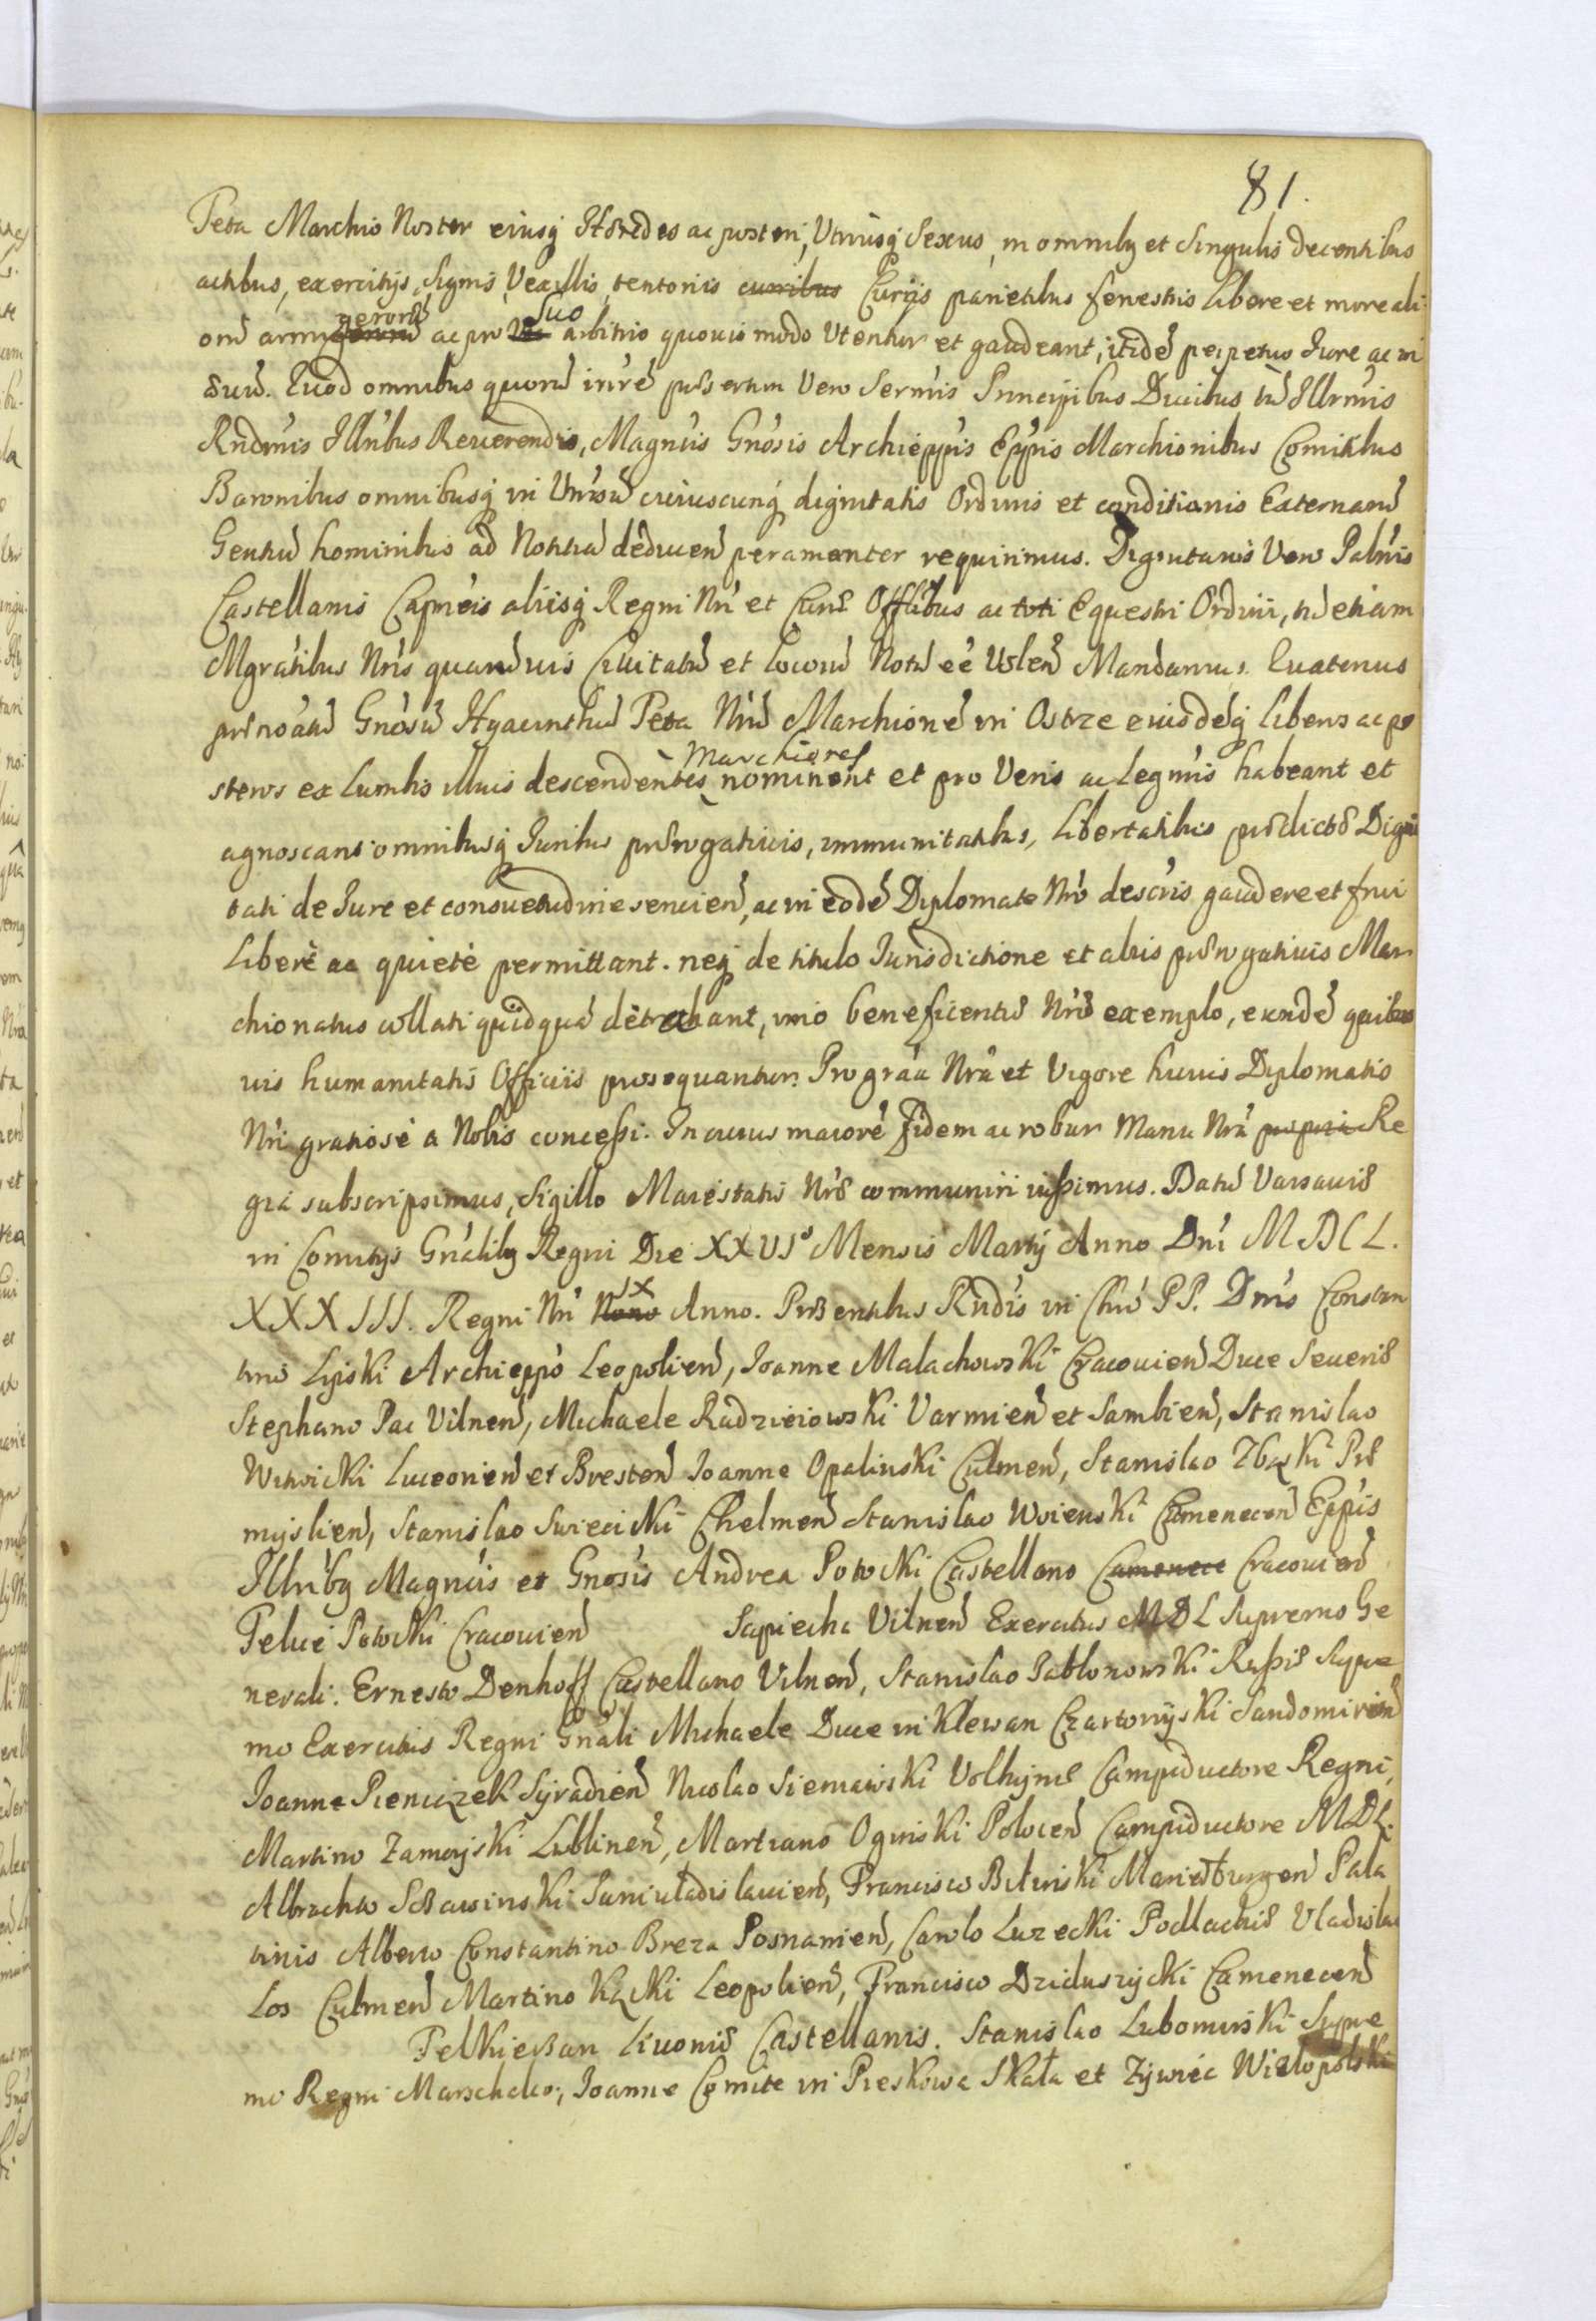 81.
Peta Marchio Noster eiusq Hæredes ac posteri, Utriusq Sexus, in omnibq et Singulis decentibus
actibus, exercitijs, Signis, Vexillis, tentoriis curribus Curijs parietibus fenestris libere et more ali
orũ armigerorũ ac pro suo arbitrio quouis modo Utentur et gaudeant, itidẽ perpetuo Iure ac in
æuũ. Quod omnibus quorũ intrẽ præsertim Vero Sermis Principibus Ducibus tũ Illrmis
Rndmis Illribus Reuerendis, Magncis Gnosis Archieppis Eppis Marchionibus Comitibus
Baronibus omnibusq in Unrsũ cuiuscunq dignitatis Ordinis et conditionis Externarũ
Gentiũ hominibus ad Notitiã deducen peramanter requirimus. Dignitariis Vero Palnis
Castellanis Capneis aliisq Regni Nri et Curiæ Offlibus ac toti Equestri Ordini, tũ etiam
Mgratibus Nris quarũuis Ciuitatũ et Locorũ Notũ eẽ Volen Mandamus. Quatenus
prænoãtũ Gnosũ Hyacinthũ Peta Nrũ Marchionẽ in Ostrze eiusdẽq liberos ac po
steros ex Lumbis illius descendentes Marchiones nominent et pro Veris ac Legmis habeant et
agnoscant omnibusq Iuribus prærogatiuis, immunitatibus, libertatibus prædictæ Digni
tati de Iure et consuetudine seruien, ac in eodẽ Diplomate Nro descris gaudere et frui
Liberè ac quietè permittant. neq de titulo Iurisdictione et aliis prærogatiuis Mar
chionatus collati quidquã detrahant, imo beneficentiæ Nræ exemplo, eundẽ quibus
uis humanitatis Officiis prosequantur. Pro grãa Nra et Vigore huius Diplomatis
Nri gratiosè a Nobis concessi. In cuius maiorẽ fidem ac robur Manu Nra propria Re
gia subscripsimus, Sigillo Maiestatis Nræ communiri iussimus. Datũ Varsauiæ
in Comitijs Gnalibq Regni Die XXVIo Mensis Martij Anno Dni MDCL.
XXXIII. Regni Nri Nono IX Anno. Præsentibus Rndis in Chro PP. Dnis Constan
tino Lipski Archieppo Leopolien, Ioanne Malachowski Cracouien Duce Seueriæ
Stephano Pac Vilnen, Michaele Radzieiowski Varmien et Sambien, Stanislao
Witwicki Luceorien et Bresten Ioanne Opalinski Culmen, Stanislao Zbąski Præ
myslien, Stanislao Swiecicki Chelmen Stanislao Woienski Camenecen Eppis
Illribq Magncis et Gnosis Andrea Potocki Castellano Camenece Cracouien
Felice Potocki Cracouien Sapiecha Vilnen Exercitus MDL Supremo Ge
nerali. Ernesto Denhoff Castellano Vilnen, Stanislao Iablonowski Russiæ Supre
mo Exercitus Regni Gnali Michaele Duce in Klewan Czartoryski Sandomirien
Ioanne Pieniązek Syradien Nicolao Sieniawski Volhyniæ Campiductore Regni,
Martino Zamoyski Lublinen, Martiano Oginski Polocen Campiductore MDL.
Albrachto Iuniuladislauien, Francisco Bilinski Marieburgen Pala
tinis Alberto Constantino Breza Posnanien, Carolo Luzecki Podlachiæ Vladisla
Los Culmen Martino Kącki Leopolien, Francisco Dziduszycki Camenecen
Felkierzan Liuoniæ Castellanis. Stanislao Lubomirski Supre
mo Regni Marschalco, Ioanne Comite in Pieskowa Skała et Zywiec Wielopolski